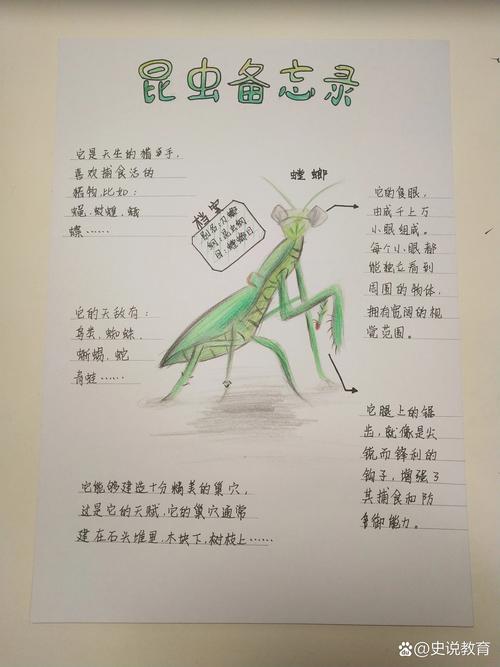 昆虫备忘录
它是天生的猎手,
喜欢捕食活的
猎物,比如:
蝇、蚊蝗、蛾
蝶……
螳螂
档案
别名:刀螂
纲:昆虫纲
目:螳螂目
它的复眼,
由成千上万
小眼组成。
每个小眼都
能独立看到
周围的物体,
拥有宽阔的视
觉范围。
它的天敌有:
鸟类、蜘蛛、
蜥蜴、蛇
青蛙……
它腿上的锯
齿,就像是尖
锐而锋利的
钩子,增强了
其捕食和防
御能力。
它能够建造十分精美的巢穴,
这是它的天赋,它的巢穴通常
建在石头堆里,木块下,树枝上……
史说教育